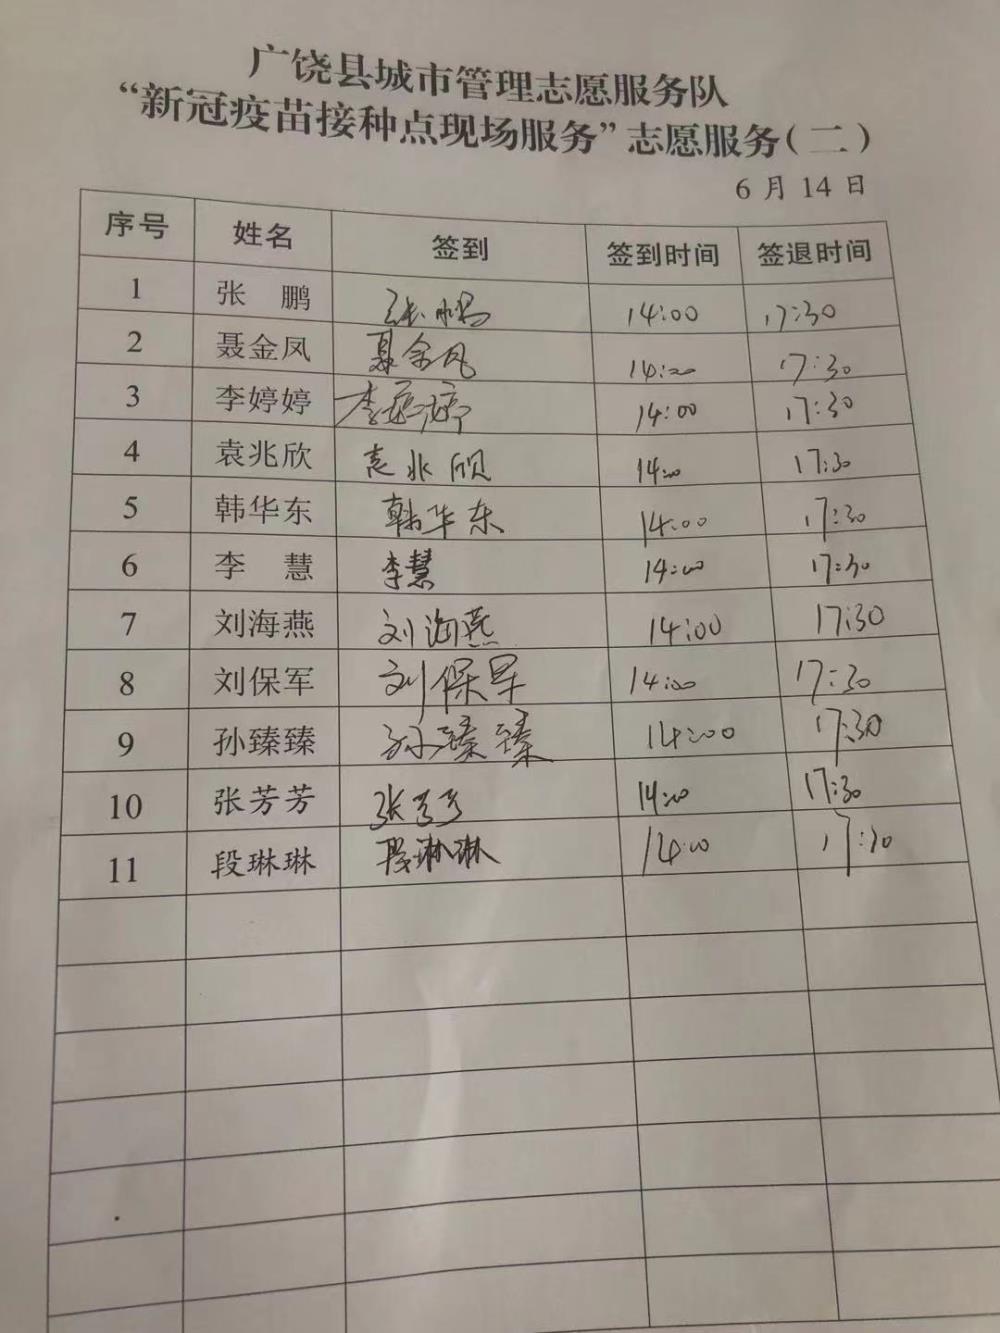 广饶县城市管理志愿服务队
“新冠疫苗接种点现场服务”志愿服务(二)
6 月 14 日
序号 姓名 签到 签到时间 签退时间
1 张 鹏 张鹏 14:00 17:30
2 聂金凤 聂金凤 14:00 17:30
3 李婷婷 李婷婷 14:00 17:30
4 袁兆欣 袁兆欣 14:00 17:30
5 韩华东 韩华东 14:00 17:30
6 李 慧 李慧 14:00 17:30
7 刘海燕 刘海燕 14:00 17:30
8 刘保军 刘保军 14:00 17:30
9 孙臻臻 孙臻臻 14:00 17:30
10 张芳芳 张芳芳 14:00 17:30
11 段琳琳 段琳琳 14:00 17:30